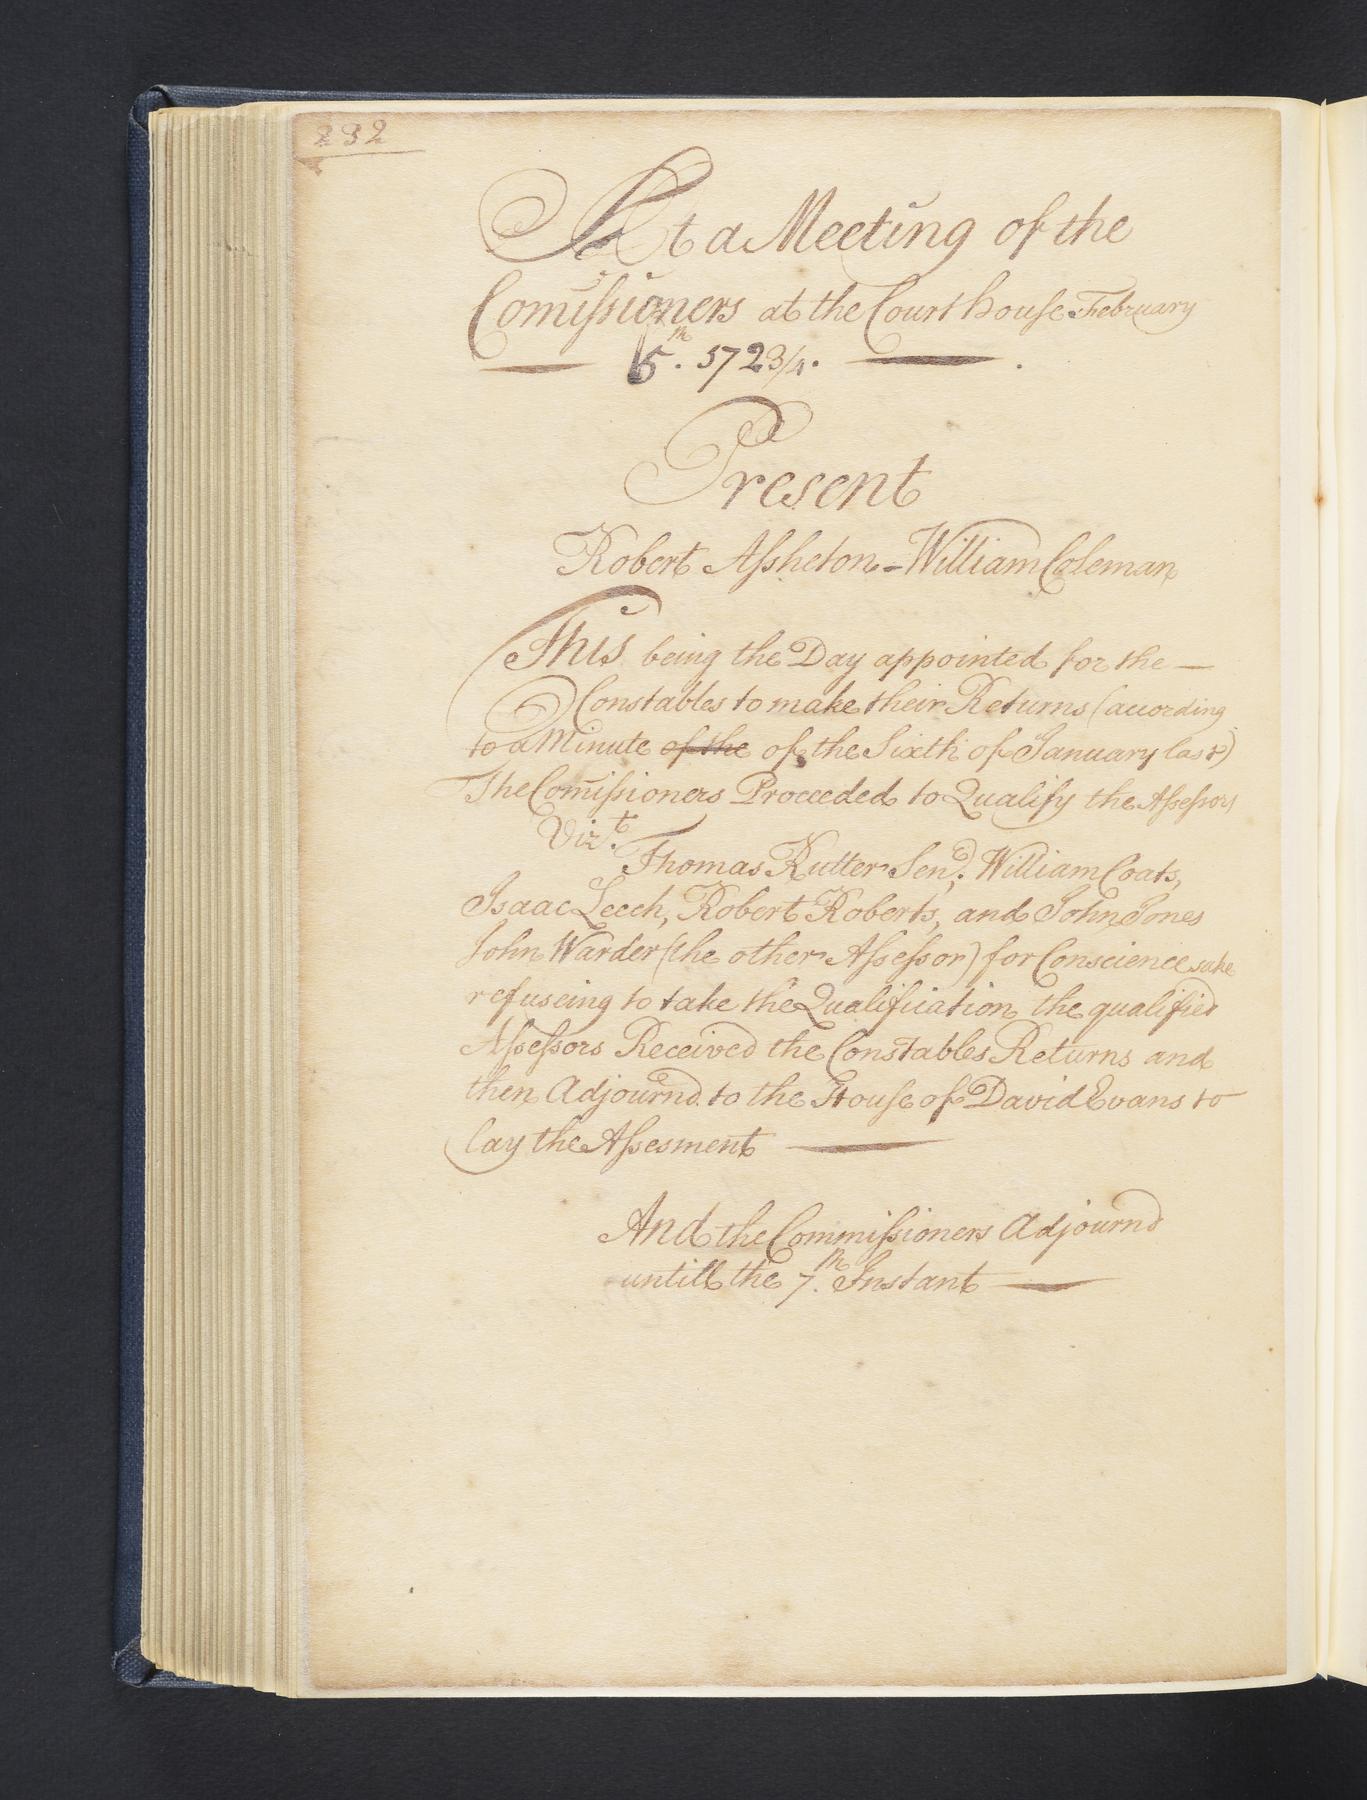 232
At a Meeting of the
Comissioners at the Court house February
5th. 1723/4.
Present
Robert Assheton - William Coleman
This being the Day appointed for the
Constables to make their Returns (according
to a Minute of the of the Sixth of January last)
The Comissioners Proceeded to Qualify the Assessors
Vizt.
Thomas Rutter Senr. William Coats,
Isaac Leech, Robert Roberts, and John Jones
John Warder (the other Assessor) for Conscience sake
refuseing to take the Qualification the qualified
Assessors Received the Constables Returns and
then Adjournd to the House of David Evans to
lay the Assesment
And the Commissioners Adjournd
untill the 7th. Instant